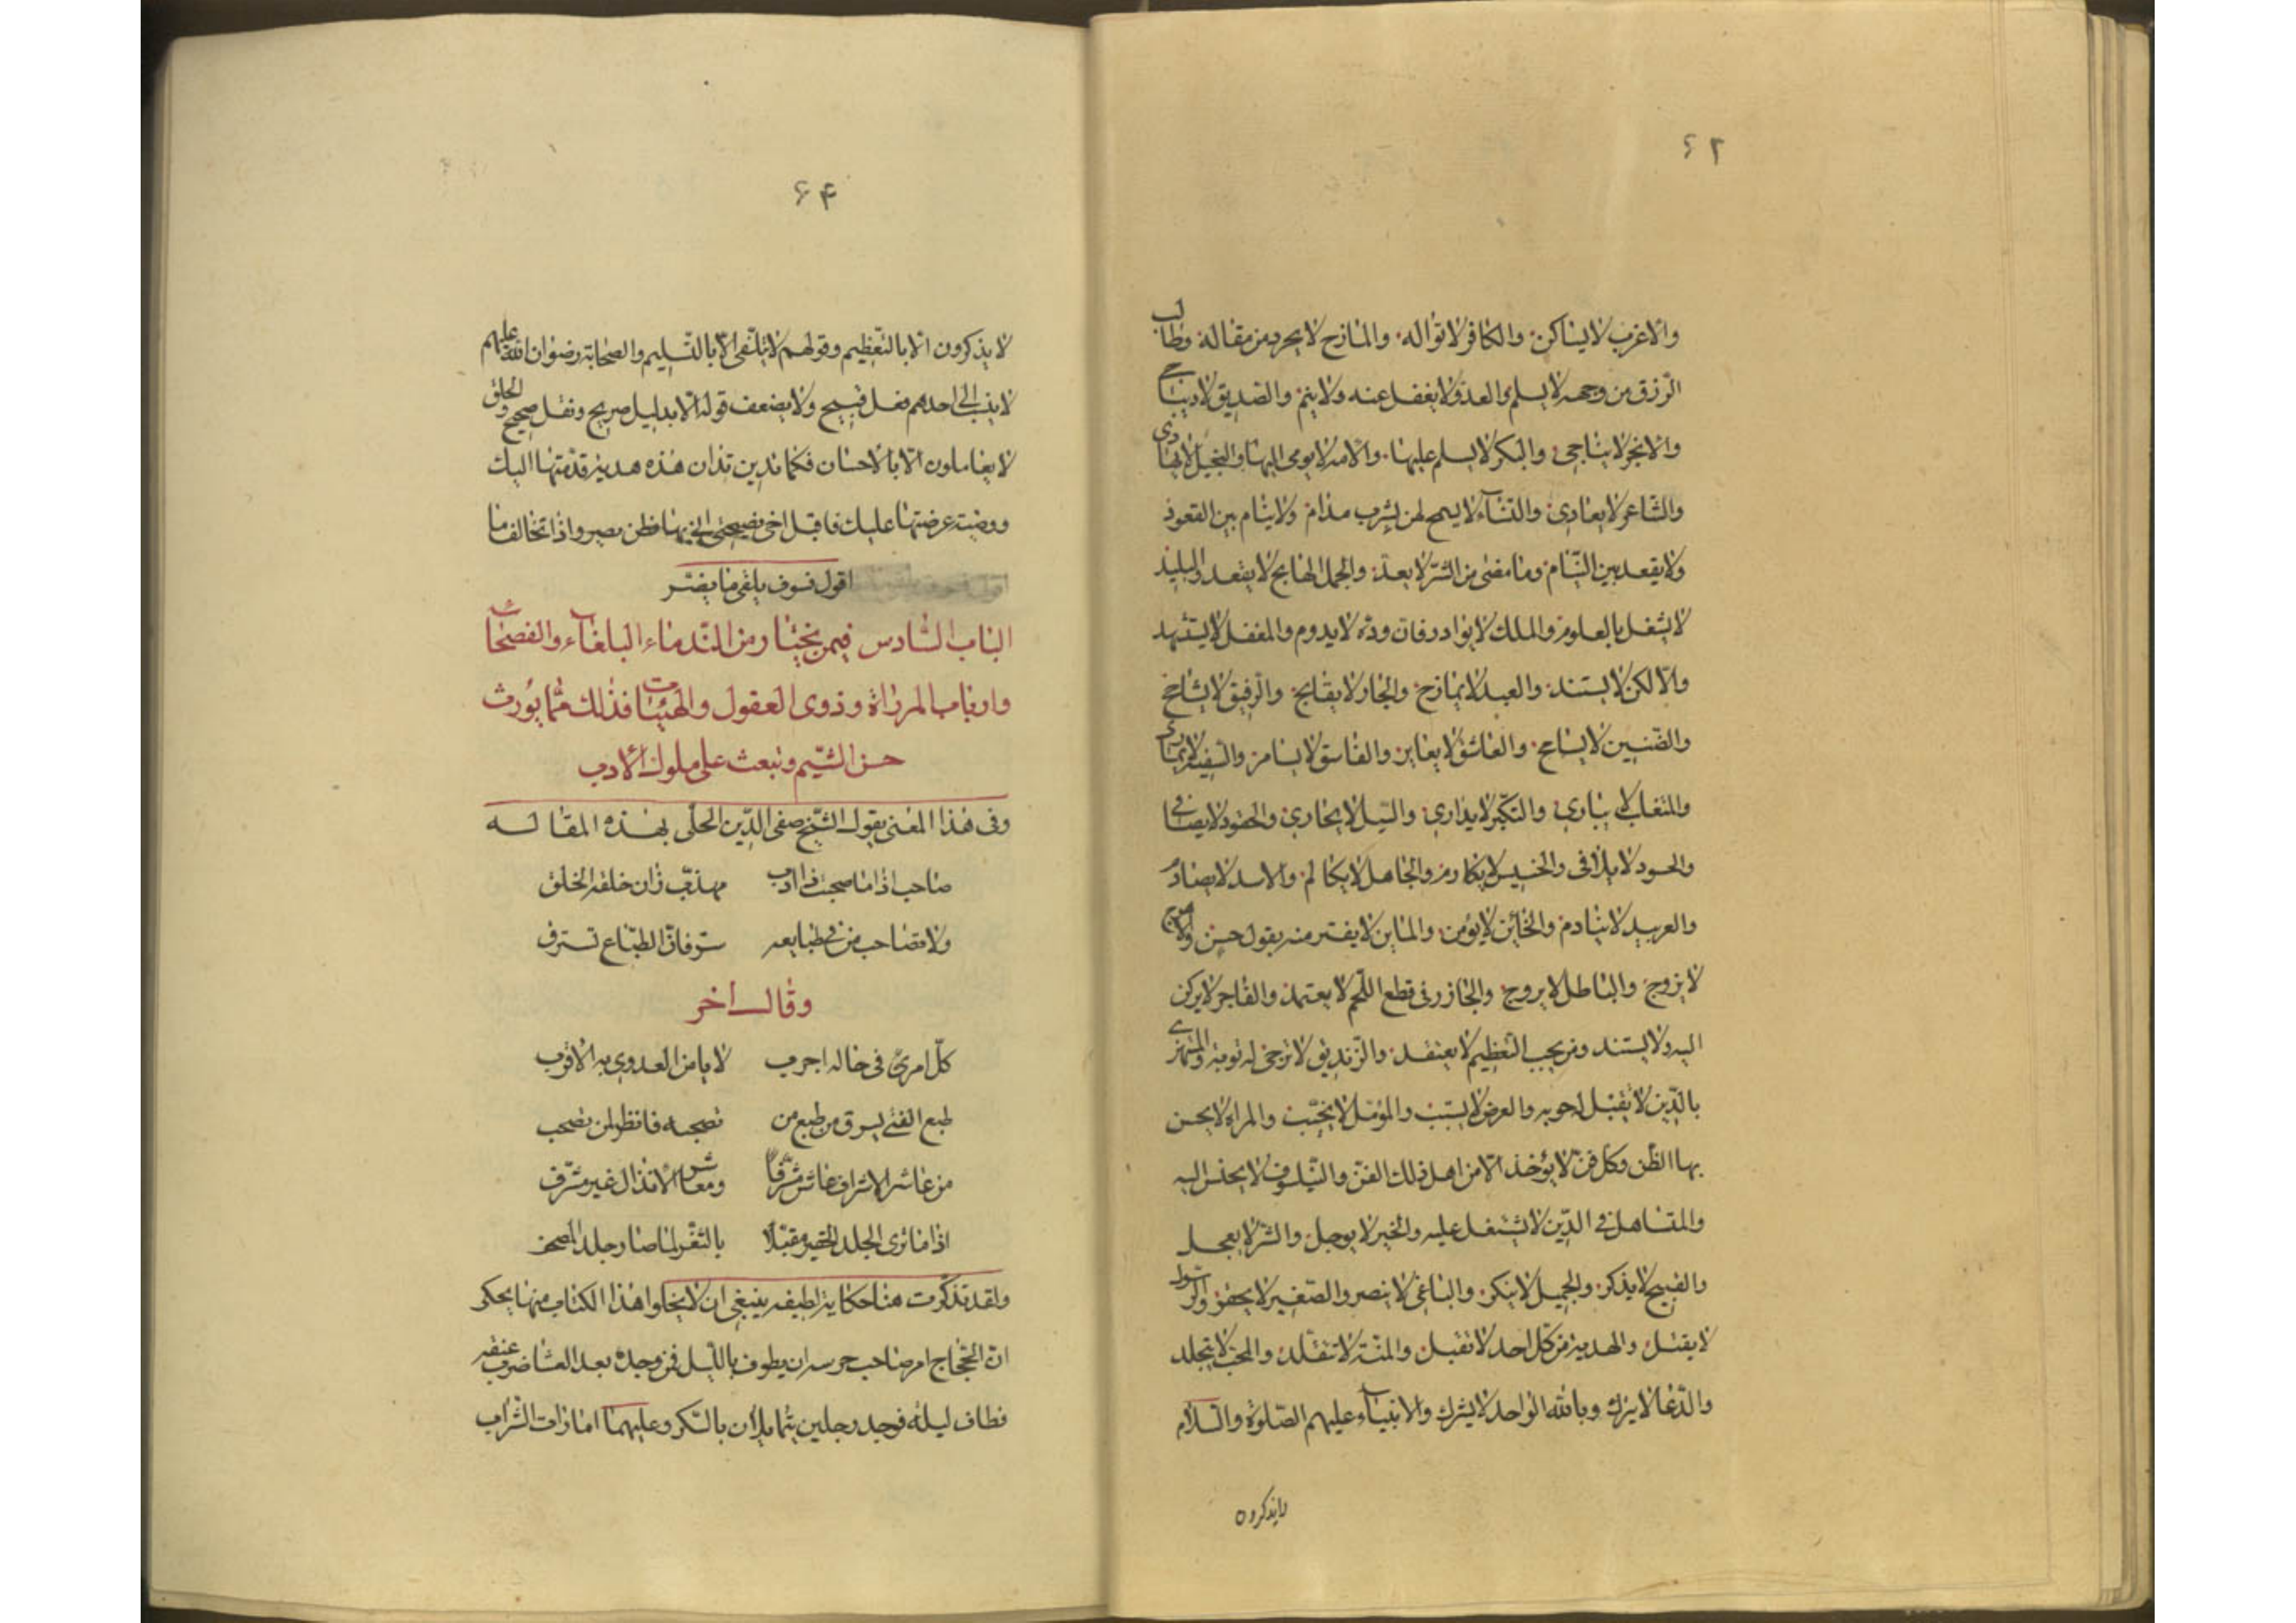 ۶۲
والاعزب لا يساكن والكافر لا تواله والمازح لا يحرد من مقاله وطالب
الرزق من وجهه لا يسلم والعدو لا يغفل عنه ولا ينم والصديق لا
والابخر لا يناجى والبكر لا يسلم عليها والامة لا يومى اليها والبخيل لا يهادى
والشاعر لا يعادى لا لمن يشرب مدام ولا ينام بين القعود
ولا يقعد بين النيام وما مضى من الشر لا يعد والجمل الهايج لا يقعد والبليد
لا يشغل بالعلوم والملك لا يوادد فان وده لا يدوم والمغفل لا يستشهد
والالكن لا يستند والعبد لا يمازح والجار لا يقابح والرفيق لا يشاحح
والضنين لا يسامح والعاشق لا يعاير والفاسق لا يسامر والسفيه لا يمارى
والمتغلب لا يبارى والمتكبر لا يدارى والسيل لا يجارى والحقود لا يصافى
والحسود لا يلافى والخسيس لا يكارم والجاهل لا يكالم والاسد لا يصادم
والعربيد لا ينادم والخائن لا يؤمن والماين لا يغتر منه بقول حسن
لا يزوج والباطل لا يروج والجازر فى قطع اللحم لا يعتمد والفاجر لا يركن
اليه ولا يستند ومن يحب التعظيم لا يعتقد والزنديق لا ترجى له توبة والمستهزئ
بالدين لا تقبل له حوبه والعرض لا يسبب والمؤمل لا يخيب والمراة لا يحسن
بها الظن وكل فن لا يؤخذ الا من اهل ذلك الفن والفيلسوف لا يجلس اليه
والمتساهل فى الدين لا يشتغل عليه والخير لا يوجل والشر لا يعجل
والقبيح لا يذكر والجميل لا ينكر والباغى لا ينصر والصغير لا يحقر والرسول
لا يقتل والهدية من كل احد لا تقبل والمنة لا تتقلد والمحب لا يتجلد
والدعا لا يترك وبالله الواحد لا يشرك والانبياء عليهم الصلوة والسلام
لا يذكرون
۶۴
لا يذكرون الا بالتعظيم وقولهم لا يتلقى الا بالتسليم والصحابة رضوان الله عليهم
لا ينسب الى احدهم فعل قبيح ولا يضعف قوله الا بدليل صريح ونقل صحيح والخلق
لا يعاملون الا بالاحسان فكما تدين تدان هذه هدية قدمتها اليك
ووصية عرضتها عليك فاقبل اخى نصيحتى فطن بصير واذا تخالف ما
اقول فسوف يلقى ما يضر
الباب السادس فيمن يختار من الندماء البلغاء والفصحاء
وارباب المرواة وذوى العقول والهيئات فذلك مما يورث
حسن الشيم وتبعث على ملوك الادب
وفى هذا المعنى يقول الشيخ صفى الدين الحلى بهذه المقاله
صاحب اذا ما صحبت ذا ادب مهذب زان خلقه الخلق
ولا تصاحب من فى طبايعه شر فان الطباع تسترق
وقال اخر
كل امرئ فى حاله اجرب لا يامن العدوى به الاقرب
طبع الفتى يسرق من طبع من تصحبه فانظر لمن تصحب
من عاشر الاشراف عاش مشرفا ومعاشر الانذال غير مشرف
اذا ما ترى الجلد الحقير مقبلا بالثغر لما صار جلد المصحف
ولقد تذكرت هنا حكاية لطيفه ينبغى ان لا يخلوا هذا الكتاب منها يحكى
ان الحجاج امر صاحب حرسه ان يطوف بالليل فمن وجده بعد العشا ضرب عنقه
فطاف ليله فوجد رجلين يتمايلان بالسكر وعليهما امارات الشراب